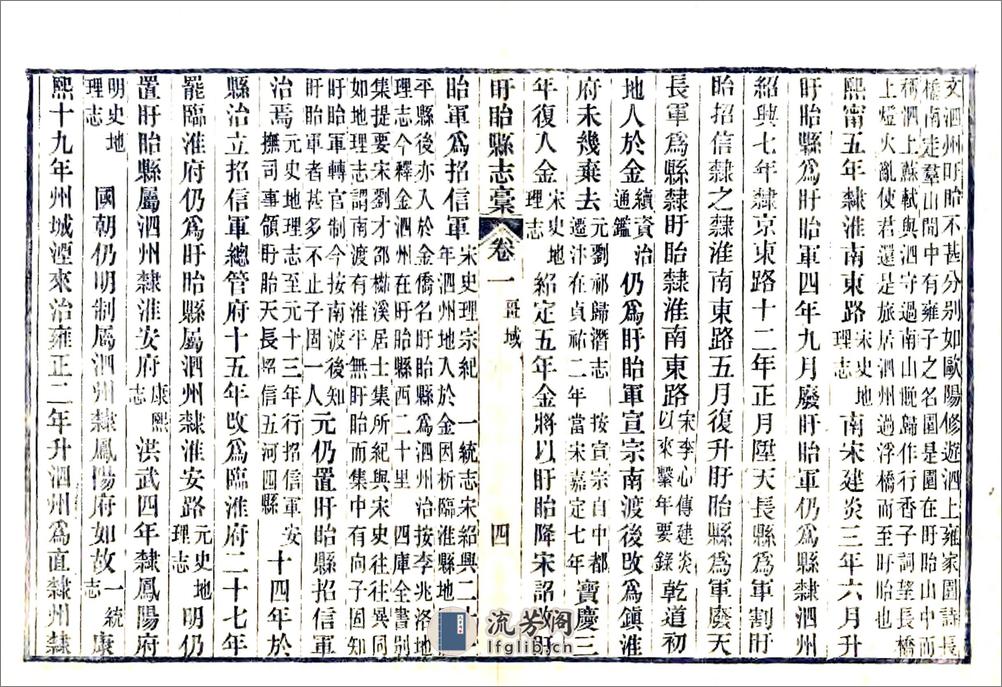 文泗州盱眙不甚分别如歐陽修遊泗上雍家園詩長
橋南走羣山間中有雍子之名園是園在盱眙山中而
稱泗上蘇軾與泗守過南山晩歸作行香子詞望長橋
上燈火亂使君還是旅居泗州過浮橋而至盱眙也
熙甯五年隸淮南東路宋史地理志南宋建炎三年六月升
盱眙縣爲盱眙軍四年九月廢盱眙軍仍爲縣隸泗州
紹興七年隸京東路十二年正月陞天長縣爲軍割盱
眙招信隸之隸淮南東路五月復升盱眙縣爲軍廢天
長軍爲縣隸盱眙隸淮南東路宋李心傳建炎以來繫年要錄乾道初
地人於金續資治通鑑仍爲盱眙軍宣宗南渡後改爲鎮淮
府未幾棄去元劉祁歸潛志按宣宗自中都遷汴在貞祐二年當宋嘉定七年寶慶三
年復入金宋史地理志紹定五年金將以盱眙降宋詔改盱
盱眙縣志藁 卷一 疆域 四
眙軍爲招信軍宋史理宗紀一統志宋紹興二十
年泗州地入於金因析臨淮縣地
平縣後亦入於金僑名盱眙縣爲泗州治按李兆洛地
理志今釋金泗州在盱眙縣西二十里四庫全書别
集提要宋劉才邵檆溪居士集所紀與宋史往往異同
如地理志謂南渡有淮平無盱眙而集中有向子固知
盱眙軍轉官制今按南渡後知
盱眙軍者甚多不止子固一人元仍置盱眙縣招信軍
治焉元史地理志至元十三年行招信軍安撫司事領盱眙天長招信五河四縣十四年於
縣治立招信軍總管府十五年改爲臨淮府二十七年
罷臨淮府仍爲盱眙縣屬泗州隸淮安路元史地理志明仍
置盱眙縣屬泗州隸淮安府康熙志洪武四年隸鳳陽府
明史地理志國朝仍明制屬泗州隸鳳陽府如故一統志康
熙十九年州城湮來治雍正二年升泗州爲直隸州隸
流芳阁
lfglib.cn